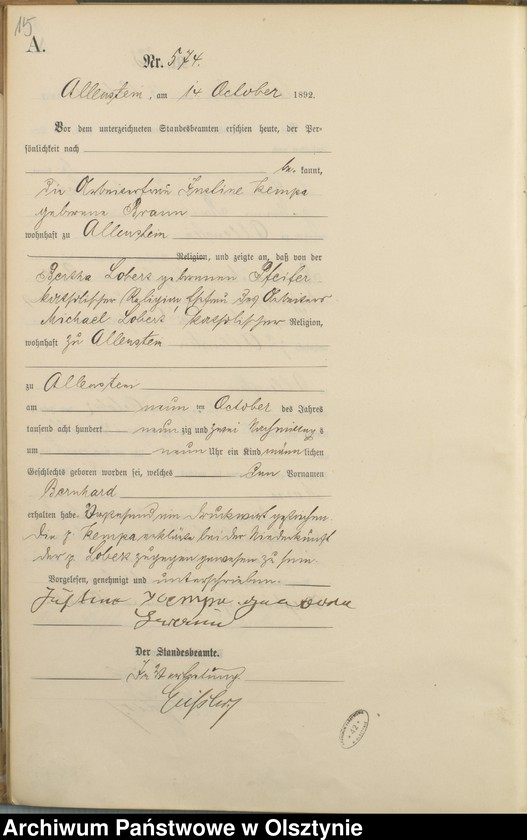 15
A.
Nr. 574.
Allenstein, am 14 October 1892.
Vor dem unterzeichneten Standesbeamten erschien heute, der Per-
sönlichkeit nach
be kannt,
die Arbeiterfrau Justine Kempa
geborene Braun
wohnhaft zu Allenstein
Religion, und zeigte an, daß von der
Bertha Lobert geborenen Pfeifer
katholischer Religion Ehefrau des Arbeiters
Michael Lobert katholischer Religion,
wohnhaft zu Allenstein
zu Allenstein
am neun ten October des Jahres
tausend acht hundert neun zig und zwei Nachmittag s
um neun Uhr ein Kind männ lichen
Geschlechts geboren worden sei, welches den Vornamen
Bernhard
erhalten habe. Vorstehend ein Druckwort gestrichen
die p Kempa erklärte bei der Niederkunft
der p Lobert zugegen gewesen zu sein.
Vorgelesen, genehmigt und unterschrieben.
Justine Kempa
Der Standesbeamte.
In Vertretung
Archiwum Państwowe w Olsztynie